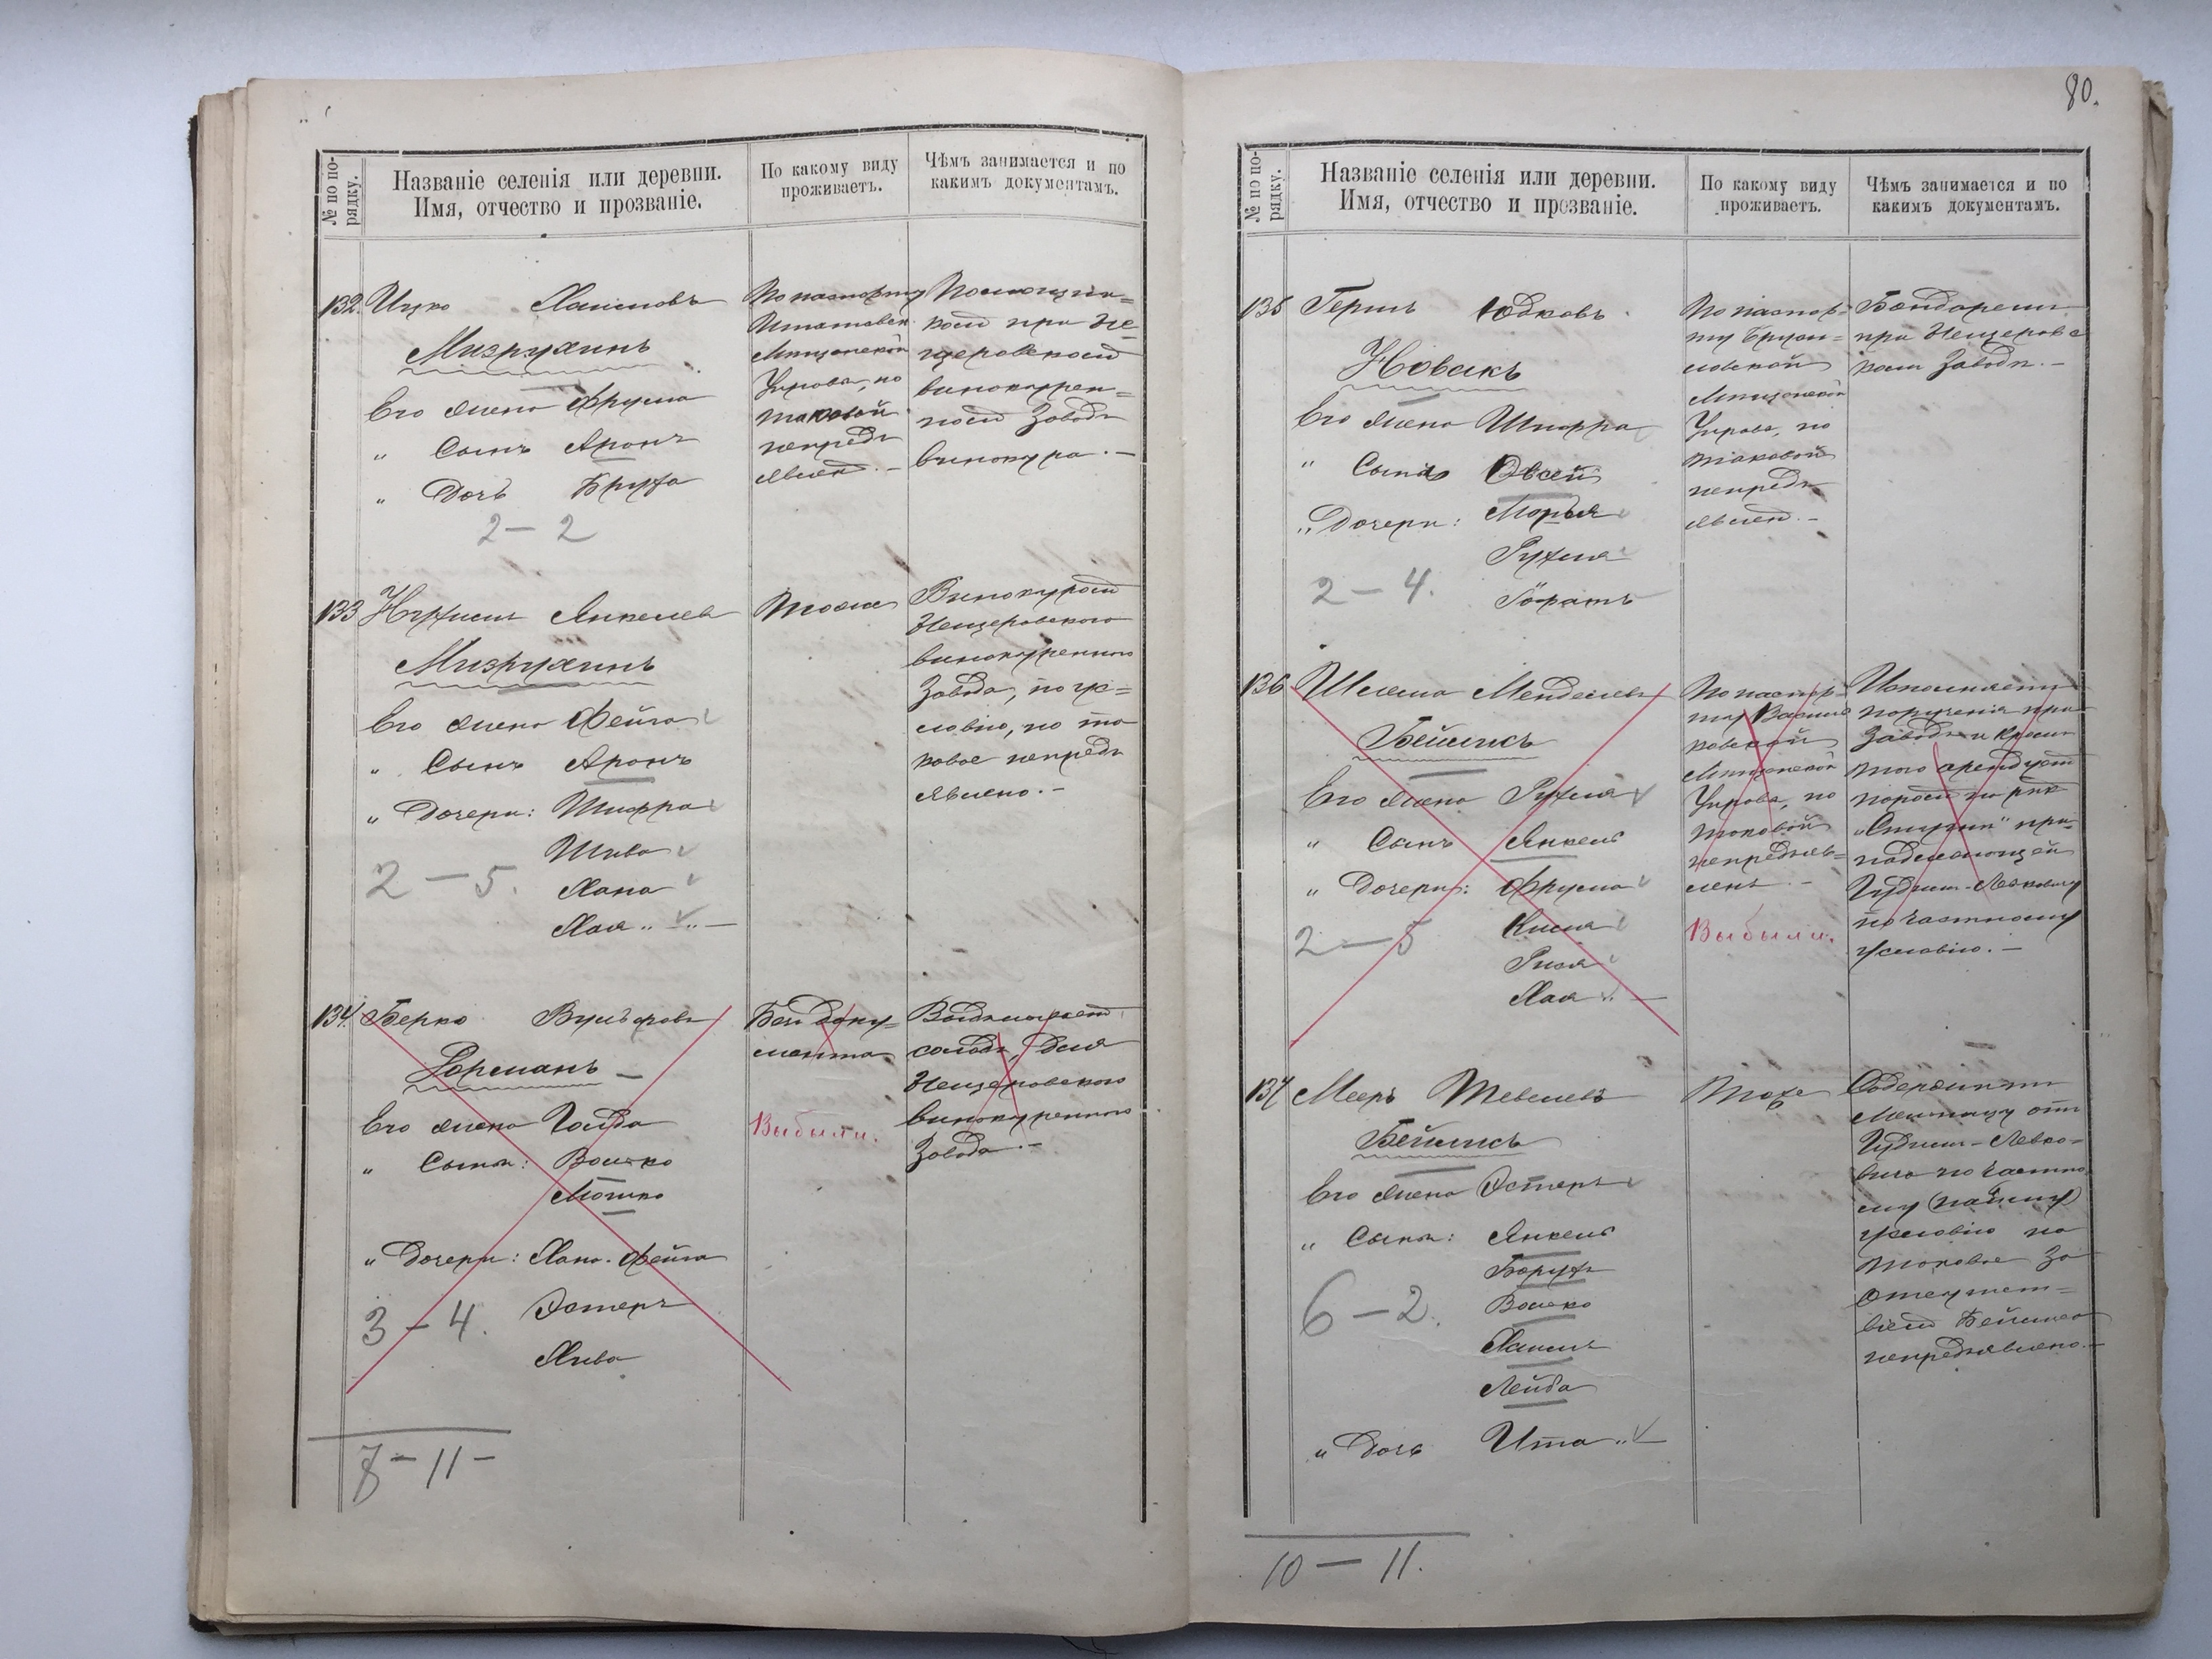 80.
№ по по-
рядку.
Названіе селенія или деревни.
Имя, отчество и прозваніе.
По какому виду
проживаетъ.
Чѣмъ занимается и по
какимъ документамъ.
132. Ицко Хаимовъ
Мизрухинъ
Его жена Фрума
„ Сынъ Аронъ
„ Дочь Бруха
2 — 2
По паспорту
Мѣщанской
Управы, но
таковой
непредъ
явленъ. —
Помощни=
комъ при Не=
щеровскомъ
винокурен=
номъ Заводѣ
винокура. —
133 Нухимъ Янкелевъ
Мизрухинъ
Его жена Фейга
„ Сынъ Аронъ
„ Дочери: Шифра
Шива
2 — 5. Хана
Хая „ — „ —
Тоже
Винокуромъ
Нещеровского
винокуренного
Завода, по ус=
ловію, но та
ковое непредъ
явлено. —
134. Берко Вульфовъ
Форманъ —
Его жена Голда
„ Сыны: Волько
Мошко
„ Дочери: Хана-Фейга
3 — 4. Эстеръ
Хива
Безъ доку=
мента
Выбыли.
солодъ, для
Нещеровского
винокуренного
Завода. —
8 — 11 —
№ по по-
рядку.
Названіе селенія или деревни.
Имя, отчество и прозваніе.
По какому виду
проживаетъ.
Чѣмъ занимается и по
какимъ документамъ.
135 Гершъ Юдковъ
Новакъ
Его жена Шифра
„ Сынъ Овсей
„ Дочери: Марья
Рухля
2 — 4.
По паспор=
ту Брусил=
овской
Мѣщанской
Управы, но
таковой
непредъ
явленъ. —
Бондаремъ
при Нещеровс
комъ Заводѣ. —
136 Шлема Менделевъ
Бейлисъ
Его жена Рухля
„ Сынъ Янкель
„ Дочери: Фрума
2 — 5
Рися
Хая „ —
По паспор=
ту Василь
ковской
Мѣщанской
Управы, но
таковой
непредъяв=
ленъ. —
Выбыли.
Исполняетъ
порученія при
Заводѣ и кромѣ
того арендуетъ
паромъ на рѣкѣ
при=
надлежащей
Гудимъ-Левковичу
по частному
условію. —
137 Мееръ Тевелевъ
Бейлисъ
Его жена Эстеръ
„ Сыны: Янкель
Борухъ
6 — 2. Волько
Хаимъ
Лейба
„ Дочь Ита „ —
Тоже
Содержитъ
Мельницу отъ
Гудимъ-Левко=
вича по частно
му
условію но
таковое за
отсутст=
віемъ Бейлиса
непредъявлено. —
10 — 11.